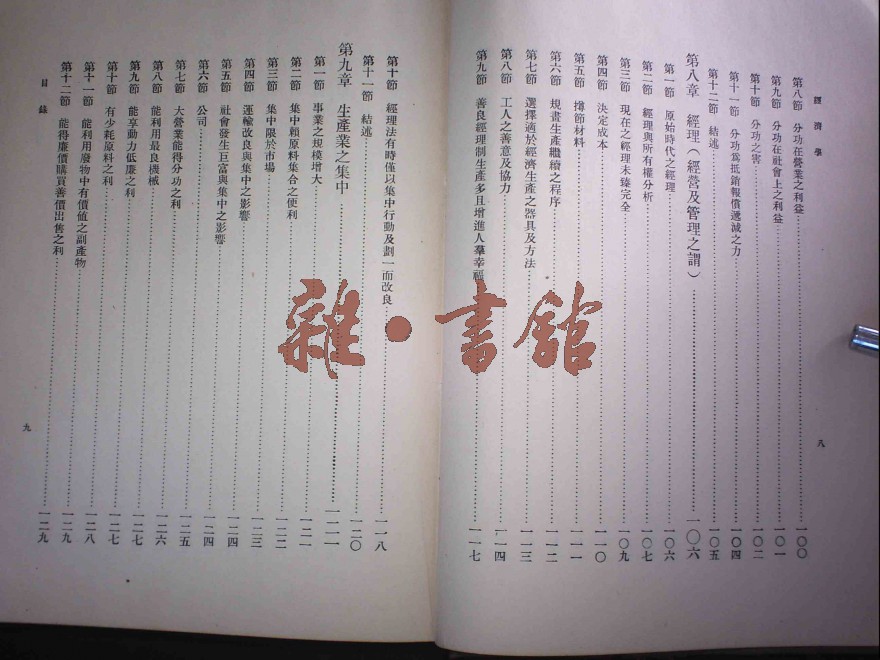 經濟學
第八節 分功在營業之利益 一〇〇
第九節 分功在社會上之利益 一〇一
第十節 分功之害 一〇二
第十一節 分功爲抵銷報償遞減之力 一〇四
第十二節 結述 一〇五
第八章 經理（經營及管理之謂） 一〇六
第一節 原始時代之經理 一〇六
第二節 經理與所有權分析 一〇七
第三節 現在之經理未臻完全 一〇九
第四節 決定成本 一一〇
第五節 撙節材料 一一一
第六節 規畫生產繼續之程序 一一二
第七節 選擇適於經濟生產之器具及方法 一一三
第八節 工人之善意及協力 一一四
第九節 善良經理制生產多且增進人羣幸福 一一七
八
第十節 經理法有時僅以集中行動及劃一而改良 一一八
第十一節 結述 一二〇
第九章 生產業之集中 一二一
第一節 事業之規模增大 一二一
第二節 集中賴原料集合之便利 一二二
第三節 集中限於市場 一二三
第四節 運輸改良與集中之影響 一二三
第五節 社會發生巨富與集中之影響 一二四
第六節 公司 一二四
第七節 大營業能得分功之利 一二五
第八節 能利用最良機械 一二六
第九節 能享動力低廉之利 一二七
第十節 有少耗原料之利 一二七
第十一節 能利用廢物中有價値之副產物 一二八
第十二節 能得廉價購買善價出售之利 一二九
目錄
九
一二九
雜·書館